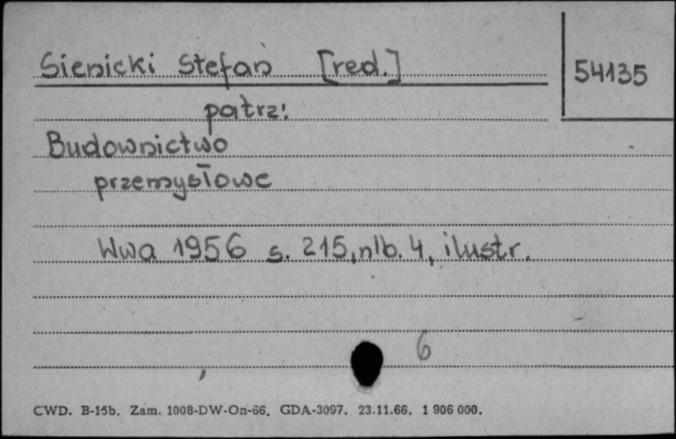 Sienicki Stefan [red.]
54135
patrz:
Budownictwo
przemysłowe
Wwa 1956 s. 215, nlb. 4, ilustr.
6
CWD. B-15b. Zam. 1008-DW-On-66. GDA-3097. 23.11.66. 1 906 000.